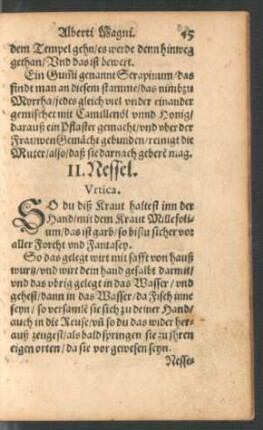 Alberti Magni. 45
dem Tempel gehn/es werde denn hinweg
gethan/Vnd das ist bewert.
Ein Gum̃i genannt Serapinum/das
findt man an diesem stamme/das nimb zu
Myrrha/jedes gleich viel vnder einander
gemischet mit Camillenöl vnnd Honig/
darauß ein Pflaster gemacht/vnd vber der
Frauwen Gemächt gebunden/reinigt die
Muter/also/daß sie darnach geberẽ mag.
II. Nessel.
Vrtica.
SO du diß Kraut haltest inn der
Hand/mit dem Kraut Millefoli-
um/das ist garb/so bistu sicher vor
aller Forcht vnd Fantasey.
So das gelegt wirt mit safft von hauß
wurtz/vnd wirt dem hand gesalbt darmit/
vnd das vbrig gelegt in das Wasser/vnd
gehest/dann in das Wasser/da Fisch inne
seyn/so versamlẽ sie sich zu deiner Hand/
auch in die Reuse/vñ so du das wider her-
auß zeugest/als bald springen sie zu jhren
eigen orten/da sie vor gewesen seyn.
Nesse-